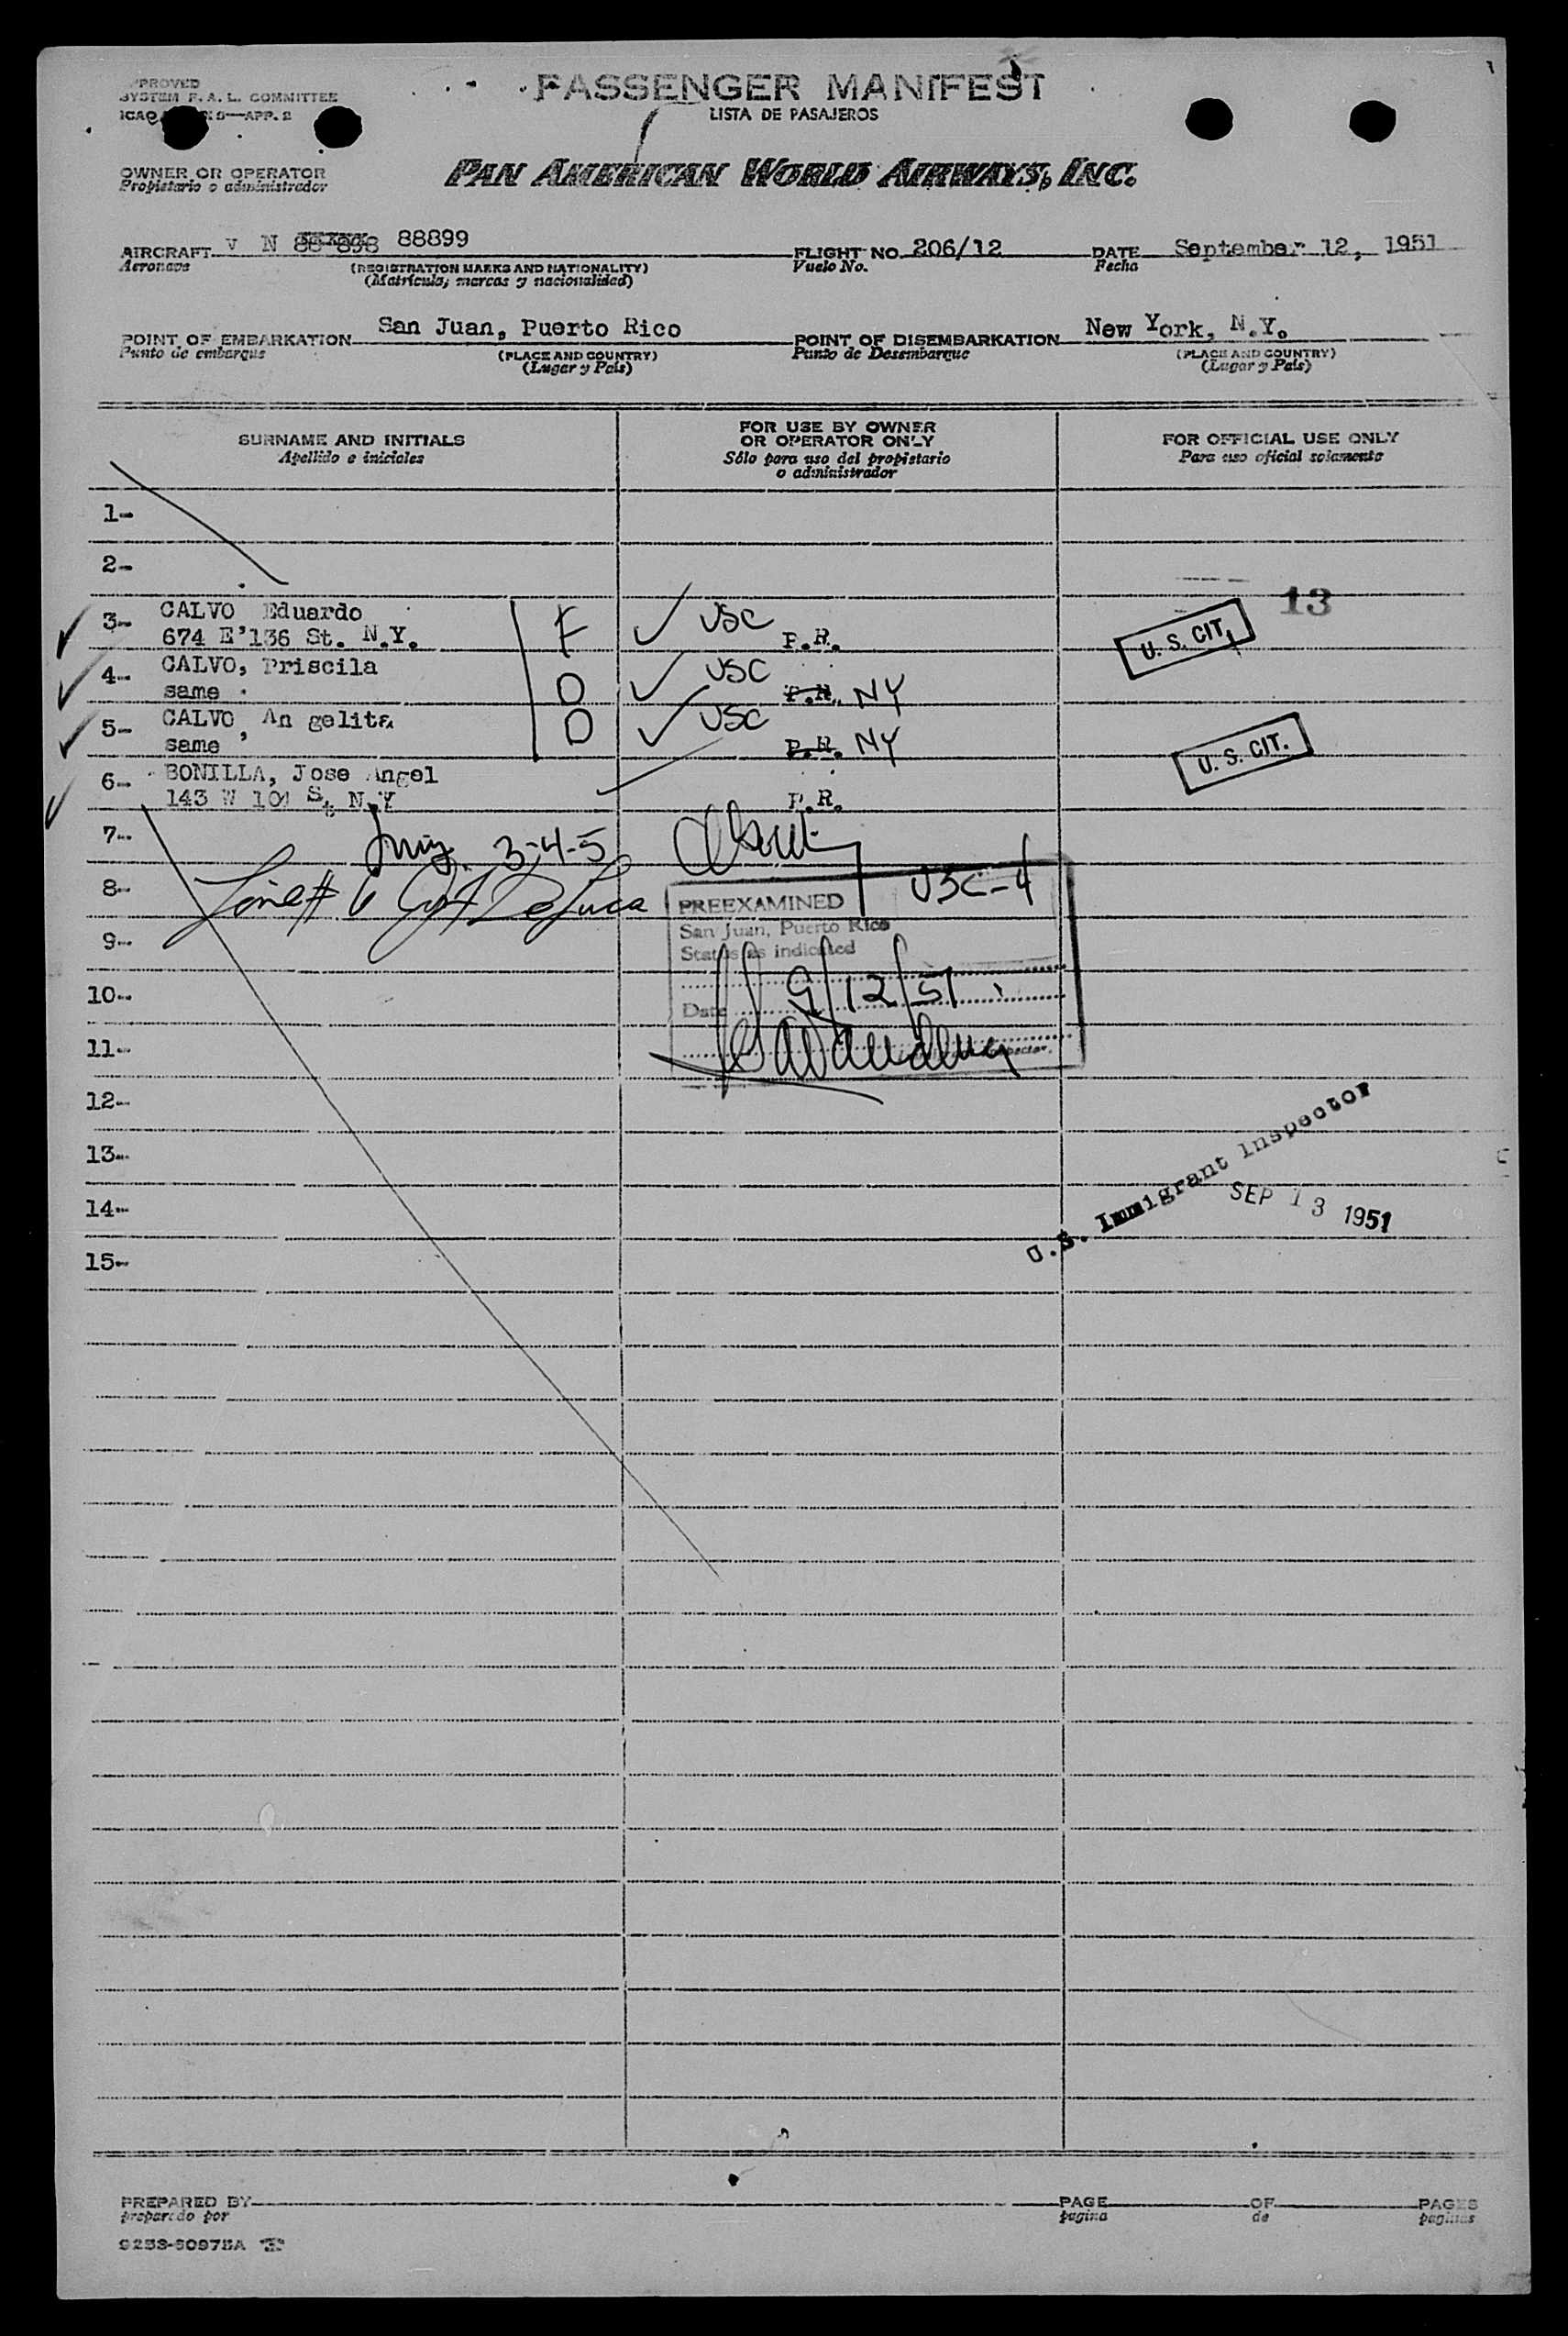 PASSENGER MANIFEST
LISTA DE PASAJEROS
PROVED
SYSTEM F. A. L. COMMITTEE
ICAO 9—APP. 2
OWNER OR OPERATOR
Propietario o administrador
PAN AMERICAN WORLD AIRWAYS, INC.
AIRCRAFT V N 88 898 88899
Aeronave
(REGISTRATION MARKS AND NATIONALITY)
(Matrícula, marcas y nacionalidad)
FLIGHT NO. 206/12
Vuelo No.
DATE September 12, 1951
Fecha
POINT OF EMBARKATION San Juan, Puerto Rico
Punto de embarque
(PLACE AND COUNTRY)
(Lugar y País)
POINT OF DISEMBARKATION New York, N.Y.
Punto de Desembarque
(PLACE AND COUNTRY)
(Lugar y País)
SURNAME AND INITIALS
Apellido e iniciales
FOR USE BY OWNER
OR OPERATOR ONLY
Sólo para uso del propietario
o administrador
FOR OFFICIAL USE ONLY
Para uso oficial solamente
1-
2-
13
3- CALVO Eduardo F ✓ USC
674 E'136 St. N.Y. P.R. U. S. CIT.
4- CALVO, Priscila O ✓ USC
same P.R. NY
5- CALVO, An gelita O ✓ USC
same P.R. NY U. S. CIT.
6- BONILLA, Jose Angel
143 W 101 St. N.Y P.R.
7- 3-4-5
8- Line # 6 DeLuca USC-4
PREEXAMINED
San Juan, Puerto Rico
9-
Status as indicated
10-
Date 9/12/51
11-
12-
13-
14-
15-
U.S. Immigrant Inspector
SEP 13 1951
PREPARED BY
preparado por
PAGE OF PAGES
pagina de paginas